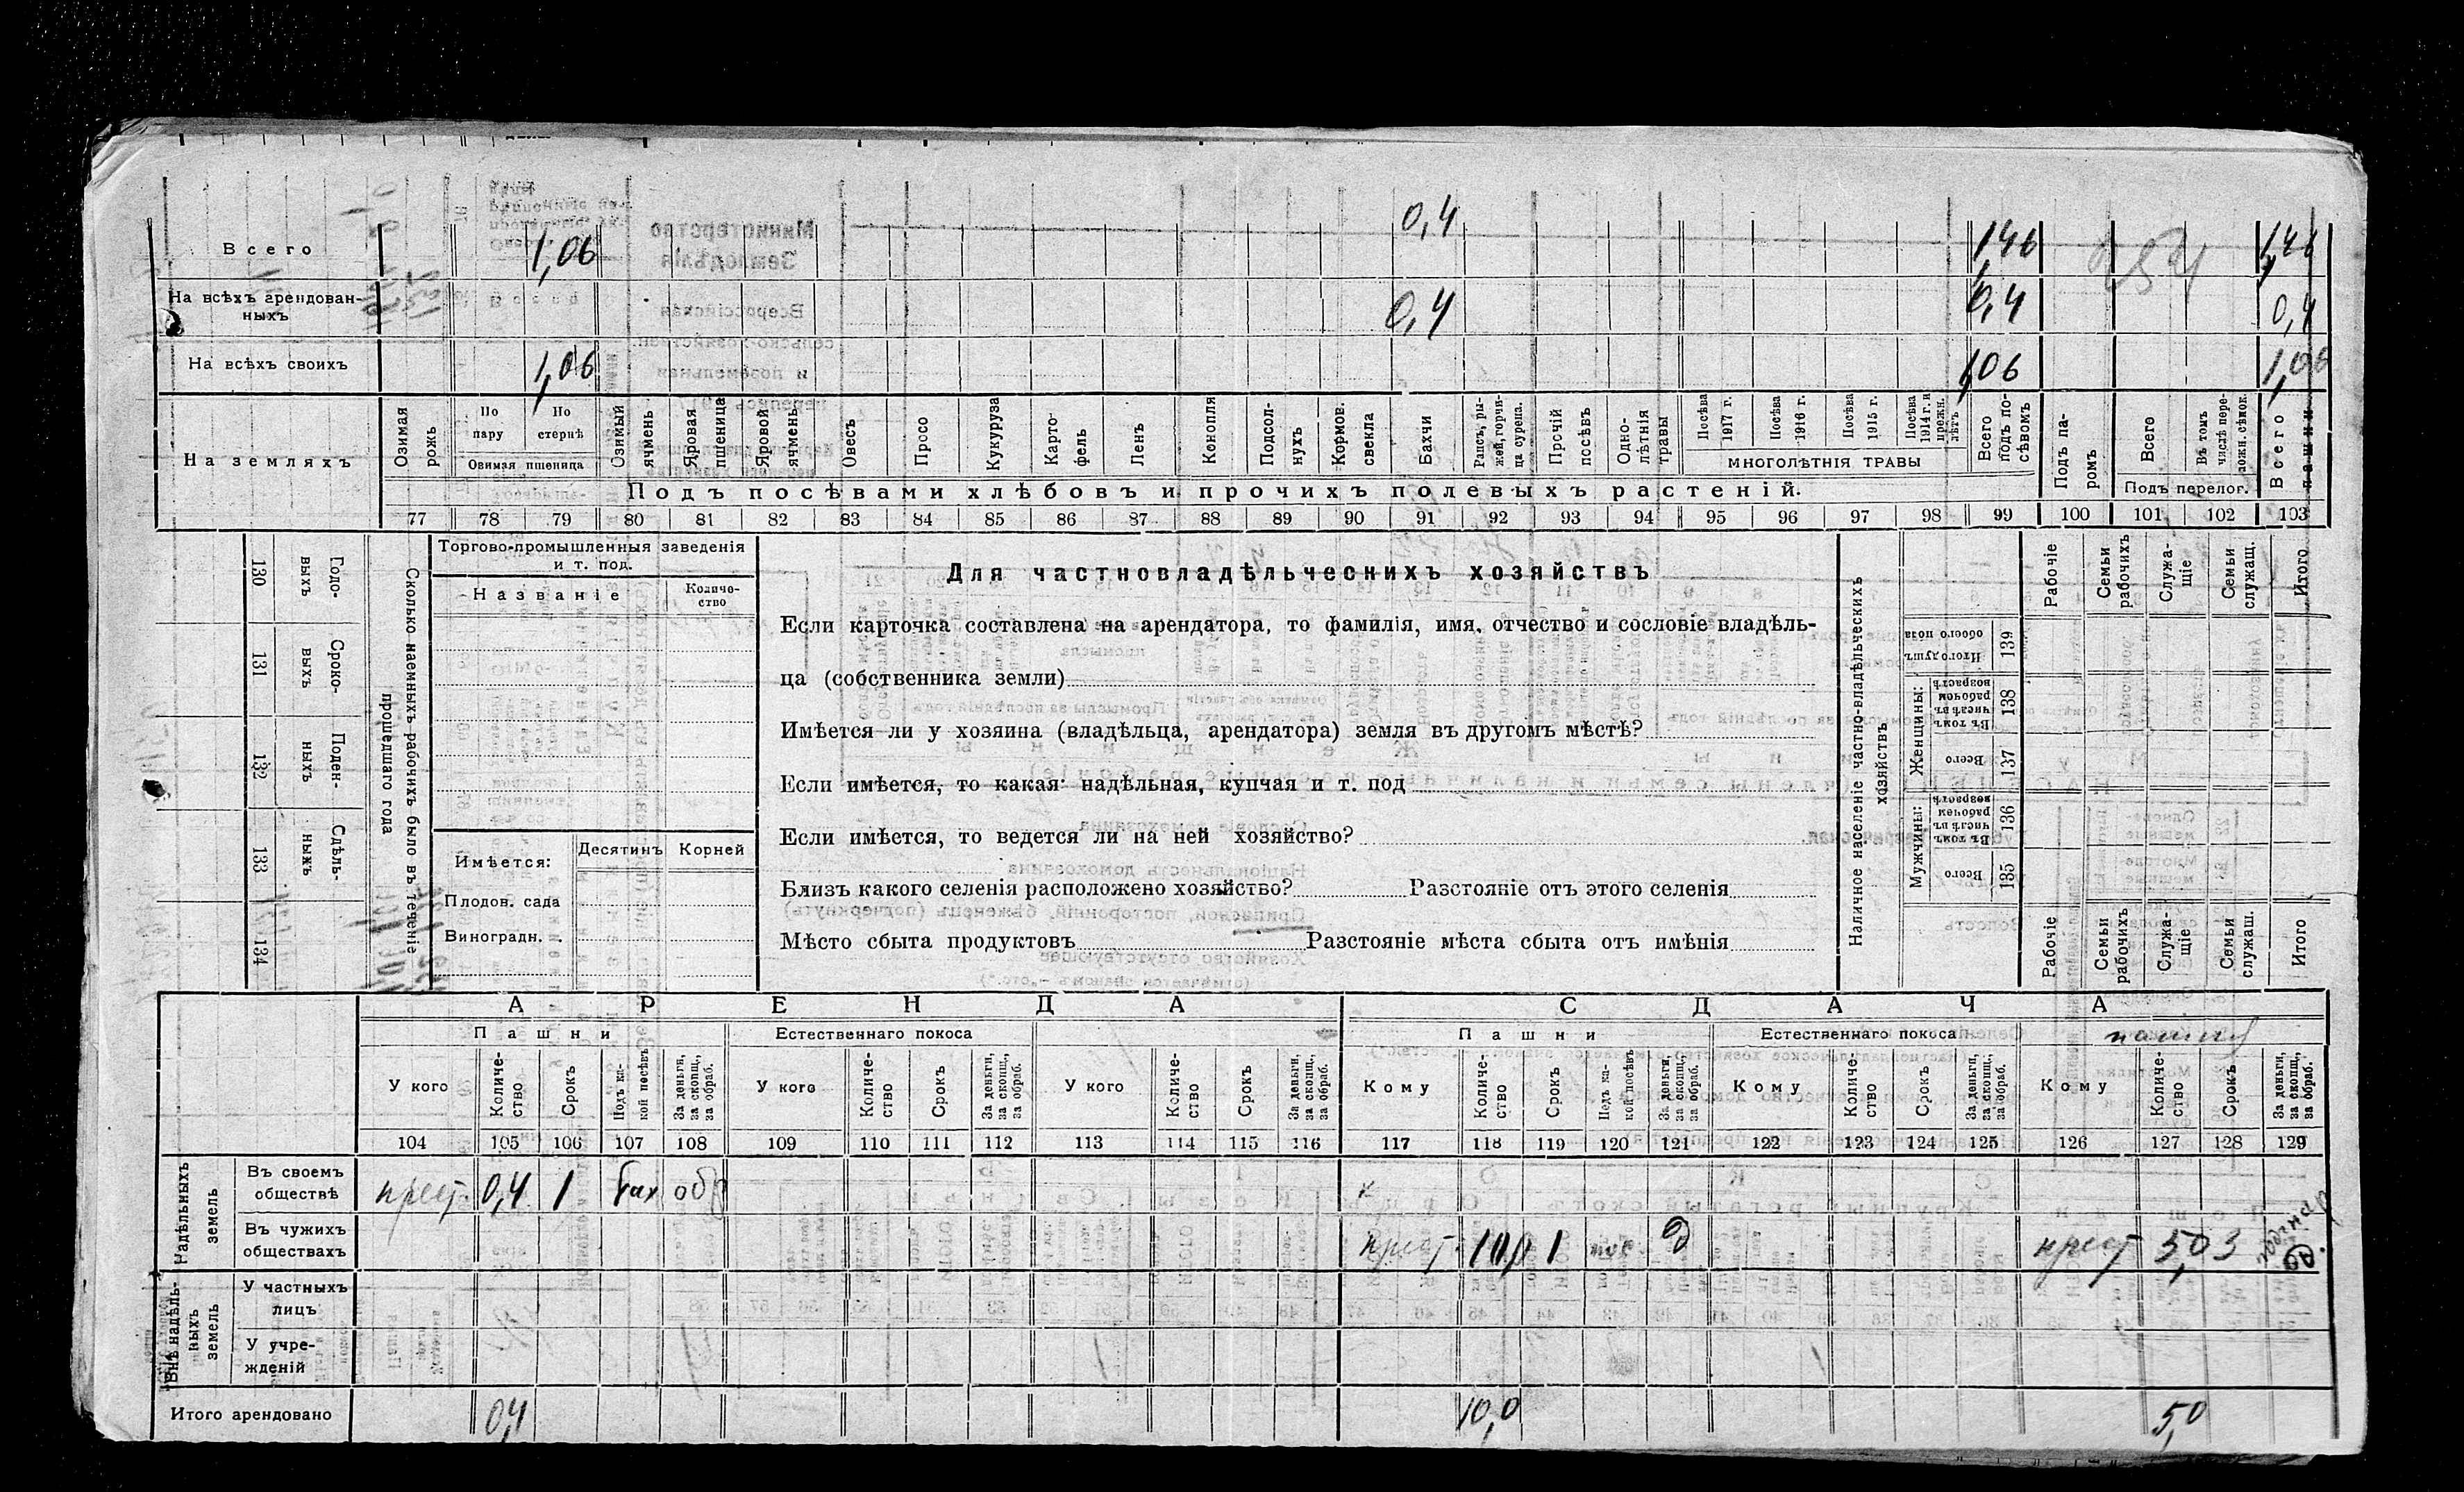 Всего 1,06 0,4 1,46 1,46
На всѣхъ арендован-
ныхъ 0,4 0,4 0,4
На всѣхъ своихъ 1,06 1,06 1,06
На земляхъ
Озимая рожь
По пару
По стернѣ
Озимая пшеница
Озимый ячмень
Яровая пшеница
Яровой ячмень
Овесъ
Просо
Кукуруза
Карто-
фель
Ленъ
Конопля
Подсол-
нухъ
Кормов. свекла
Бахчи
Рапсъ, ры-
жей, горчи-
ца сурепа.
Прочій посѣвъ
Одно-
лѣтнія травы
Посѣва 1917 г.
Посѣва 1916 г.
Посѣва 1915 г.
Посѣва 1914 г. и прежн. лѣтъ
МНОГОЛѢТНІЯ ТРАВЫ
Всего подъ по-
сѣвомъ
Подъ па-
ромъ
Всего
Въ томъ числѣ пере-
ложн. сѣнок.
Подъ перелог.
Всего пашни
Подъ посѣвами хлѣбовъ и прочихъ полевыхъ растеній.
77 78 79 80 81 82 83 84 85 86 87 88 89 90 91 92 93 94 95 96 97 98 99 100 101 102 103
Сколько наемныхъ рабочихъ было въ теченіе
прошедшаго года
Годо-
выхъ
130
Сроко-
выхъ
131
Поден-
ныхъ
132
Сдѣль-
ныхъ
133
134
Торгово-промышленныя заведенія
и т. под.
Названіе
Количе-
ство
Имѣется: Десятинъ Корней
Плодов. сада
Виноградн. .
Для частновладѣльческихъ хозяйствъ
Если карточка составлена на арендатора, то фамилія, имя, отчество и сословіе владѣль-
ца (собственника земли)
Имѣется ли у хозяина (владѣльца, арендатора) земля въ другомъ мѣстѣ?
Если имѣется, то какая: надѣльная, купчая и т. под
Если имѣется, то ведется ли на ней хозяйство?
Близъ какого селенія расположено хозяйство? Разстояніе отъ этого селенія
Мѣсто сбыта продуктовъ Разстояніе мѣста сбыта отъ имѣнія
Наличное населеніе частно-владѣльческихъ
хозяйствъ
Рабочіе
Семьи рабочихъ
Служа-
щіе
Семьи служащ.
Итого
Итого душъ обоего пола 139
Женщины:
Въ томъ числѣ въ рабочемъ возрастѣ 138
Всего 137
Мужчины:
Въ томъ числѣ въ рабочемъ возрастѣ 136
Всего 135
Рабочіе
Семьи рабочихъ
Служа-
щіе
Семьи служащ.
Итого
АРЕНДА СДАЧА
Пашни Естественнаго покоса Пашни Естественнаго покоса пашни
У кого
Количе-
ство
Срокъ
Подъ ка-
кой посѣвъ
За деньги,
за скопщ.,
за обраб.
У кого
Количе-
ство
Срокъ
За деньги,
за скопщ.,
за обраб.
У кого
Количе-
ство
Срокъ
За деньги,
за скопщ.,
за обраб.
Кому
Количе-
ство
Срокъ
Подъ ка-
кой посѣвъ
За деньги,
за скопщ.,
за обраб.
Кому
Количе-
ство
Срокъ
За деньги,
за скопщ.,
за обраб.
Кому
Количе-
ство
Срокъ
За деньги,
за скопщ.,
за обраб.
104 105 106 107 108 109 110 111 112 113 114 115 116 117 118 119 120 121 122 123 124 125 126 127 128 129
Надѣльныхъ земель
Въ своемъ
обществѣ крест. 0,4 1 бах обр
Въ чужихъ
обществахъ крест. 10,0 1 д крест 5,0 3
Внѣ надѣль-
ныхъ земель
У частныхъ
лицъ
У учре-
жденій
Итого арендовано 0,4 10,0 5,0